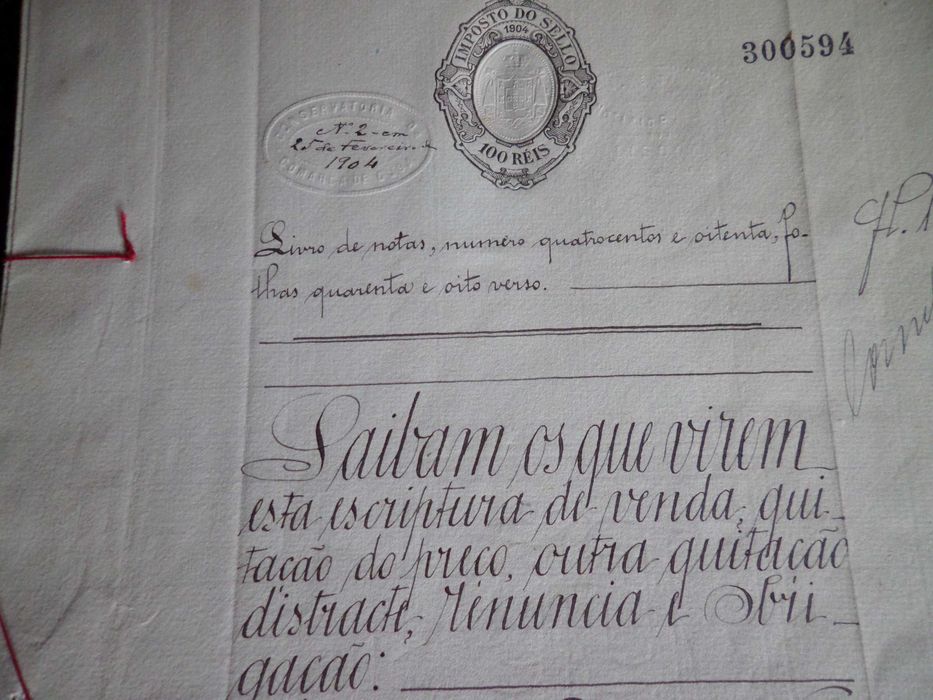 IMPOSTO DO SELLO
1904
100 RÉIS
300594
CONSERVATORIA DA
Nº 2 - em
25 de Fevereiro de
1904
COMARCA DE
Livro de notas, numero quatrocentos e oitenta, fo-
lhas quarenta e oito verso.
Saibam os que virem
esta escriptura de venda, qui-
tação do preço, outra quitação
distracte, renuncia e Obri-
gação: